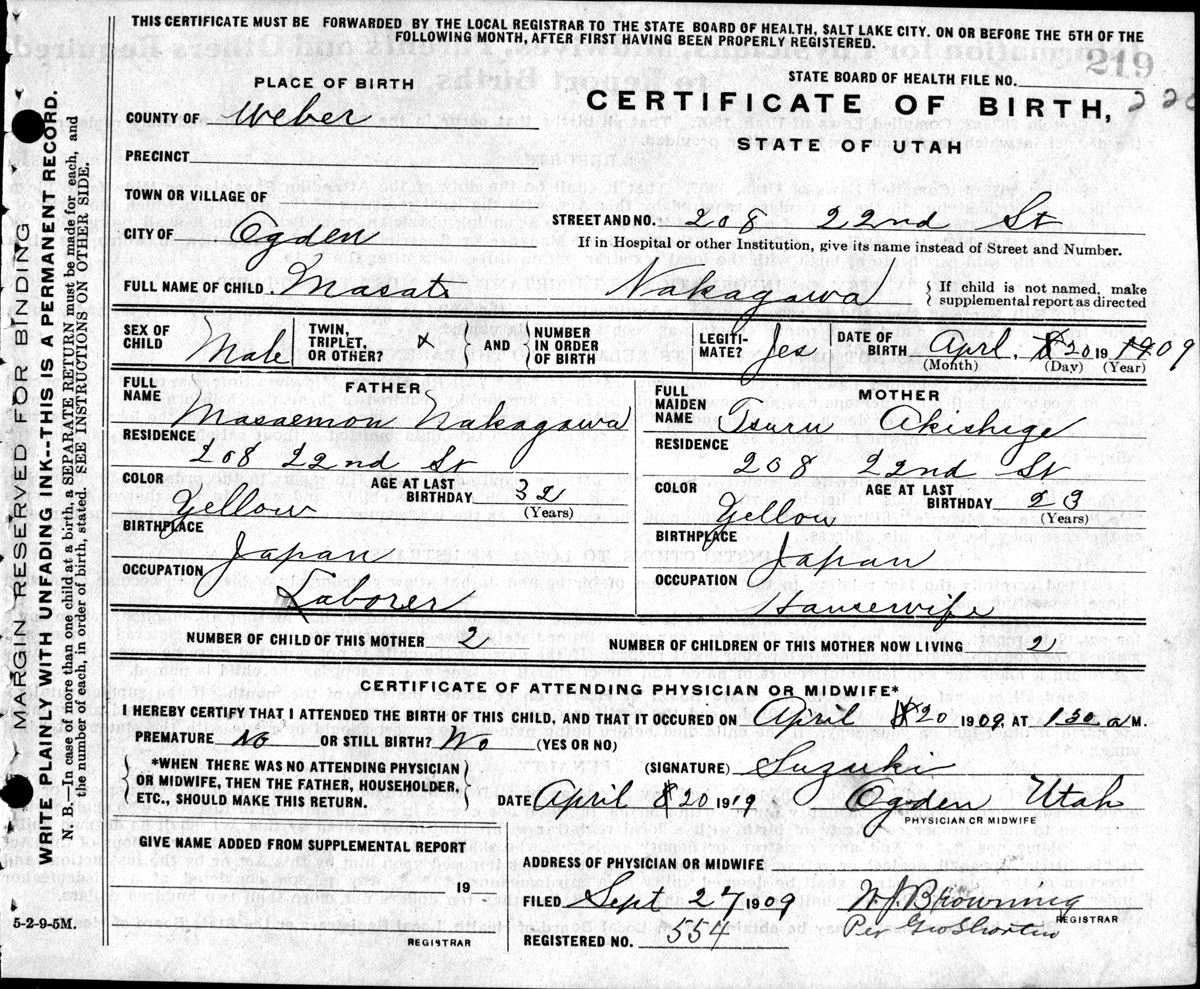 THIS CERTIFICATE MUST BE FORWARDED BY THE LOCAL REGISTRAR TO THE STATE BOARD OF HEALTH, SALT LAKE CITY. ON OR BEFORE THE 5TH OF THE
FOLLOWING MONTH, AFTER FIRST HAVING BEEN PROPERLY REGISTERED.
219
STATE BOARD OF HEALTH FILE NO.
PLACE OF BIRTH
CERTIFICATE OF BIRTH,
STATE OF UTAH
COUNTY OF Weber
PRECINCT
TOWN OR VILLAGE OF
STREET AND NO. 208 22nd St
CITY OF Ogden
If in Hospital or other Institution, give its name instead of Street and Number.
FULL NAME OF CHILD Masat Nakagawa { If child is not named, make supplemental report as directed
SEX OF CHILD Male TWIN, TRIPLET, OR OTHER? x } AND { NUMBER IN ORDER OF BIRTH LEGITI- MATE? Yes DATE OF BIRTH April, 20 19 1909
(Month) (Day) (Year)
FATHER
FULL NAME Masaemon Nakagawa
RESIDENCE 208 22nd St
COLOR Yellow AGE AT LAST BIRTHDAY 32 (Years)
BIRTHPLACE Japan
OCCUPATION Laborer
MOTHER
FULL MAIDEN NAME Tsuru Akishige
RESIDENCE 208 22nd St
COLOR Yellow AGE AT LAST BIRTHDAY 23 (Years)
BIRTHPLACE Japan
OCCUPATION Housewife
NUMBER OF CHILD OF THIS MOTHER 2 NUMBER OF CHILDREN OF THIS MOTHER NOW LIVING 2
CERTIFICATE OF ATTENDING PHYSICIAN OR MIDWIFE*
I HEREBY CERTIFY THAT I ATTENDED THE BIRTH OF THIS CHILD, AND THAT IT OCCURED ON April 20 1909. AT 1 30 a M.
PREMATURE No OR STILL BIRTH? No (YES OR NO)
*WHEN THERE WAS NO ATTENDING PHYSICIAN
OR MIDWIFE, THEN THE FATHER, HOUSEHOLDER,
ETC., SHOULD MAKE THIS RETURN.
(SIGNATURE) Suzuki
DATE April 20 1919 Ogden Utah
PHYSICIAN OR MIDWIFE
GIVE NAME ADDED FROM SUPPLEMENTAL REPORT
19
REGISTRAR
ADDRESS OF PHYSICIAN OR MIDWIFE
FILED Sept 27 1909 W J Browning
REGISTRAR
REGISTERED NO. 554 Per Geo Shorten
5-2-9-5M.
MARGIN RESERVED FOR BINDING
WRITE PLAINLY WITH UNFADING INK--THIS IS A PERMANENT RECORD.
N. B.—In case of more than one child at a birth, a SEPARATE RETURN must be made for each, and
the number of each, in order of birth, stated. SEE INSTRUCTIONS ON OTHER SIDE.